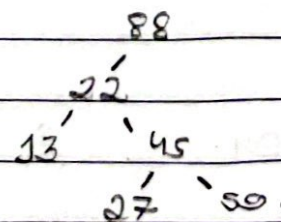 88
22
13 45
27 50